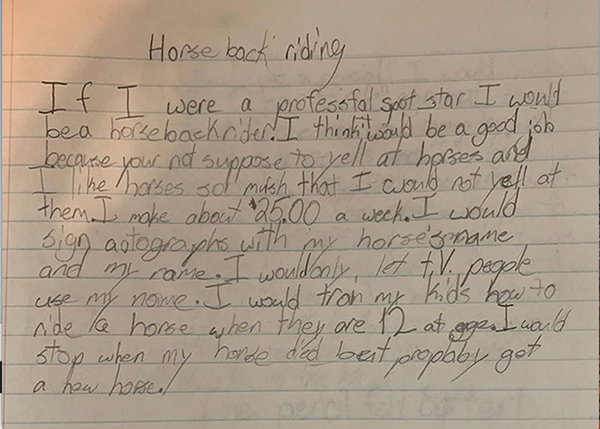 Horse back riding
If I were a professfal spot star I would
be a horsebackrider. I think it would be a good job
because your not suppose to yell at horses and
I like horses so mush that I would not yell at
them. I make about $25.00 a week. I would
sign aotographs with my horse's name
and my name. I would only, let t.V. people
use my name. I would tran my kids how to
ride a horse when they are 12 at age. I would
stop when my horse died but propably get
a new horse.